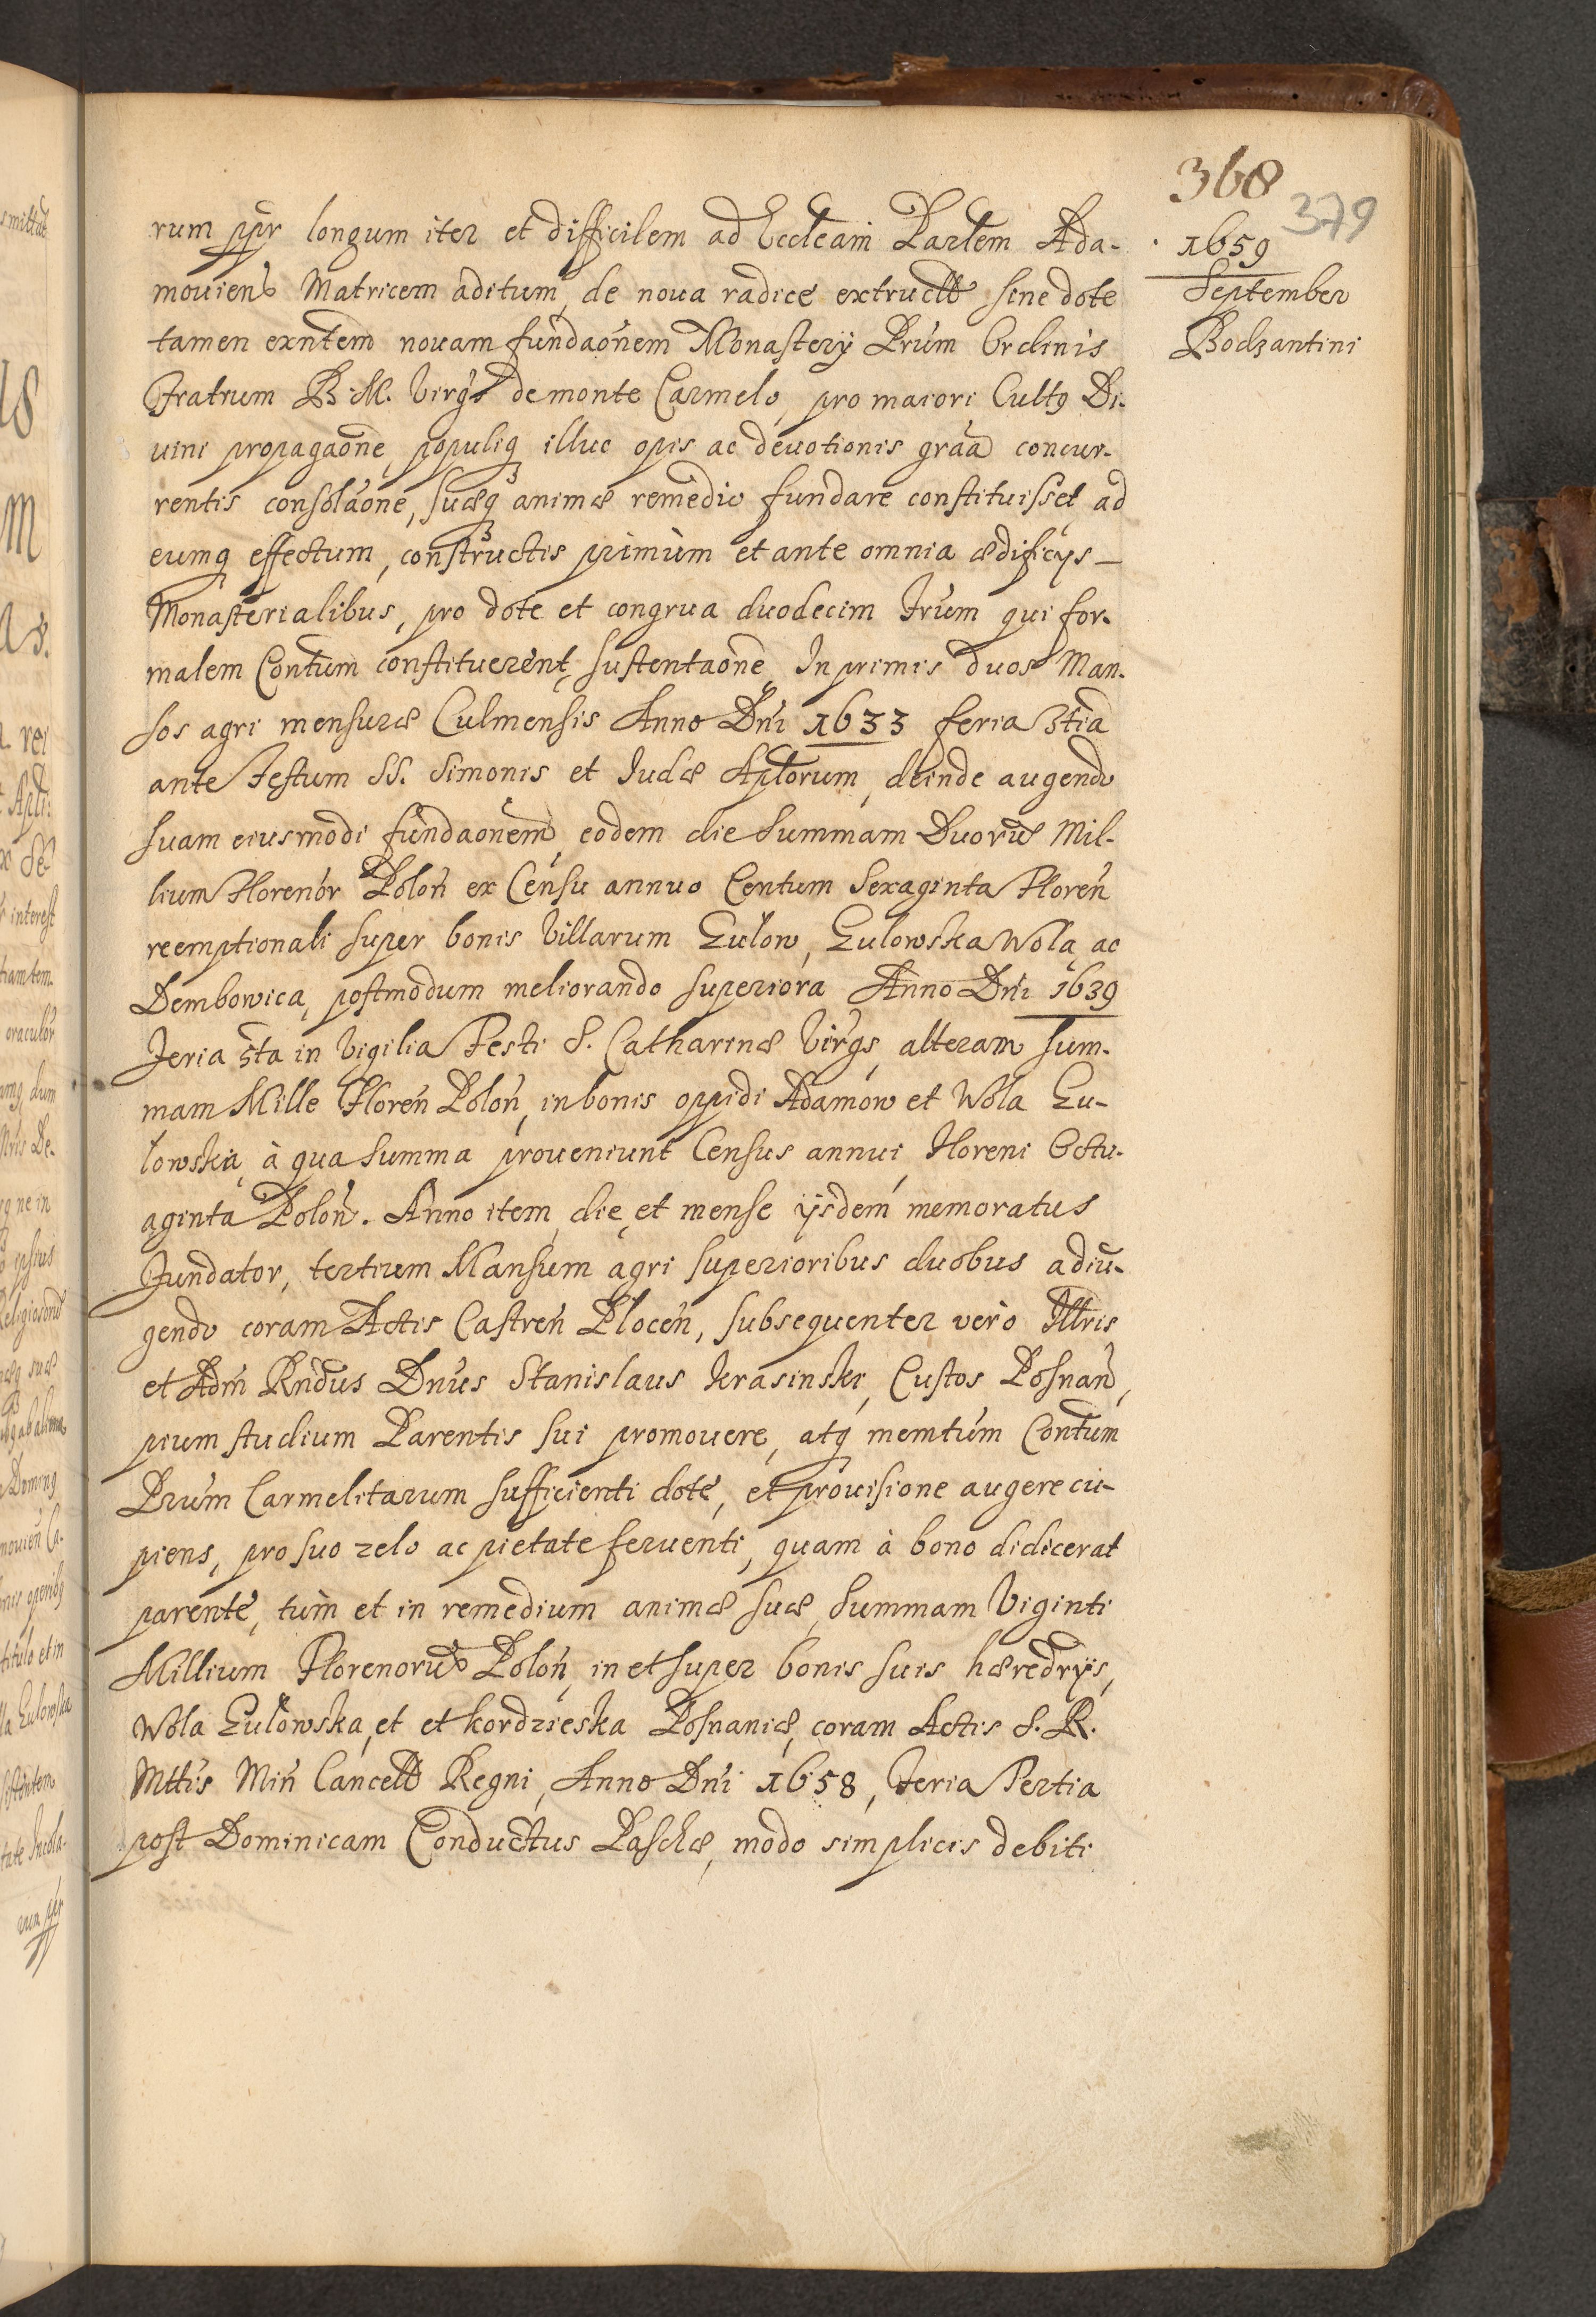 368
379
1659
September
Bodzantini
rum ppr longum iter et difficilem ad Eccleam Parlem Ada-
mouiens Matricem aditum, de noua radice extructa sine dote
tamen exntem nouam fundaonem Monastery Prum Ordinis
Fratrum B. M. Virgs de monte Carmelo, pro maiori Cultq Di-
uini propagaone, populiq illuc opis ac deuotionis graa concur-
rentis consolaone, suæq animæ remedio fundare constituisset ad
eumq effectum, constructis primum et ante omnia ædificys
Monasterialibus, pro dote et congrua duodecim Frum qui for-
malem Contum constituerent, sustentaone, In primis duos Man-
sos agri mensuræ Culmensis Anno Dni 1633 feria 3tia
ante Festum SS. Simonis et Iudæ Aplorum, deinde augendo
suam eiusmodi fundaonem, eodem die Summam Duorū Mil-
lium Florenor Polon ex Censu annuo Centum Sexaginta Floren
reemptionali super bonis Villarum Gulow, Gulowska Wola ac
Dembowica, postmodum meliorando superiora Anno Dni 1639
Feria 5ta in Vigilia Festi S. Catharinæ Virgs, alteram sum-
mam Mille Floren Polon, in bonis oppidi Adamow et Wola Gu-
lowska, à qua Summa proueniunt Census annui Floreni Octu-
aginta Polon. Anno item, die, et mense ysdem memoratus
Fundator, tertium Mansum agri superioribus duobus adiū-
gendo coram Actis Castren Plocen, subsequenter vero Illris
et Adm Rndus Dnus Stanislaus Krasinski, Custos Posnan,
pium studium Parentis sui promouere, atq memtum Contum
Prum Carmelitarum sufficienti dote, et prouisione augere cu-
piens, pro suo zelo ac pietate feruenti, quam à bono didicerat
parente, tum et in remedium animæ suæ, Summam Viginti
Millium Florenorū Polon, in et super bonis suis hæredrys,
Wola Gulowska, et et kordzieska Posnaniæ, coram Actis S. R.
Mttis Min Cancell Regni, Anno Dni 1658, Feria Tertia
post Dominicam Conductus Paschæ, modo simplicis debiti